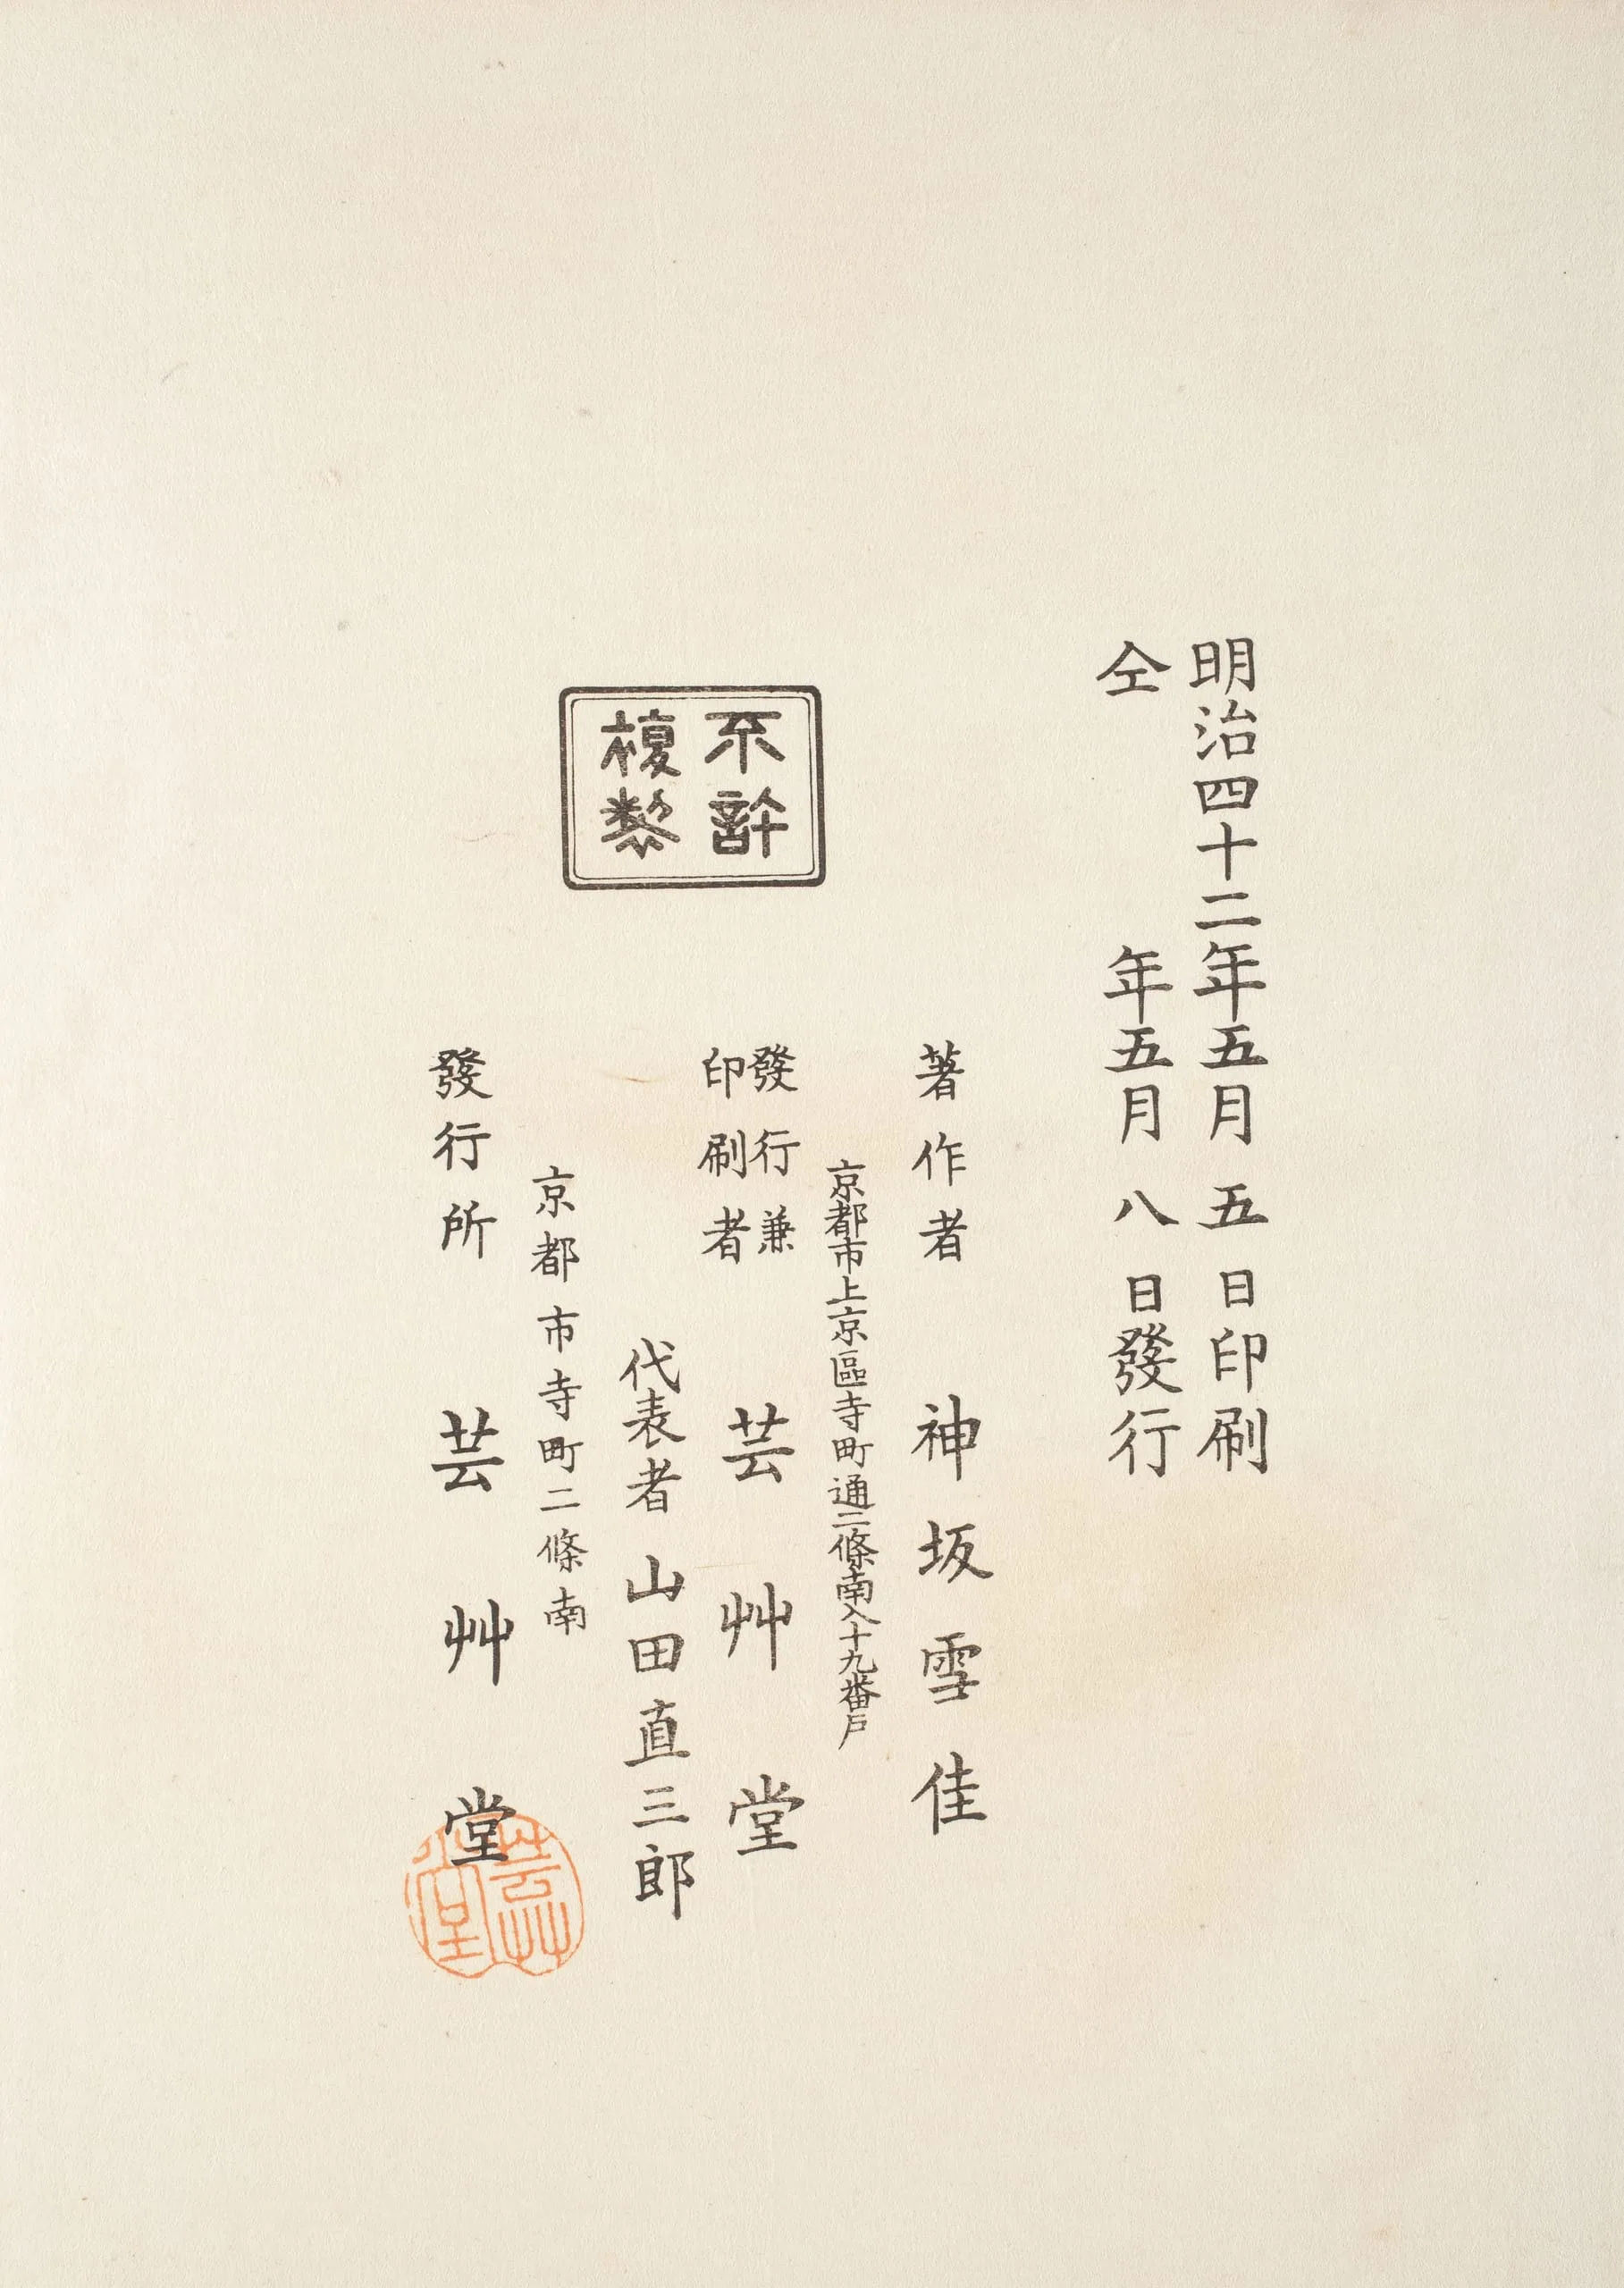 明治四十二年五月五日印刷
仝年五月八日發行
不許
複製
著作者 神坂雪佳
京都市上京區寺町通二條南入十九番戶
發行兼
印刷者
芸艸堂
代表者 山田直三郎
京都市寺町二條南
發行所 芸艸堂
芸艸
堂